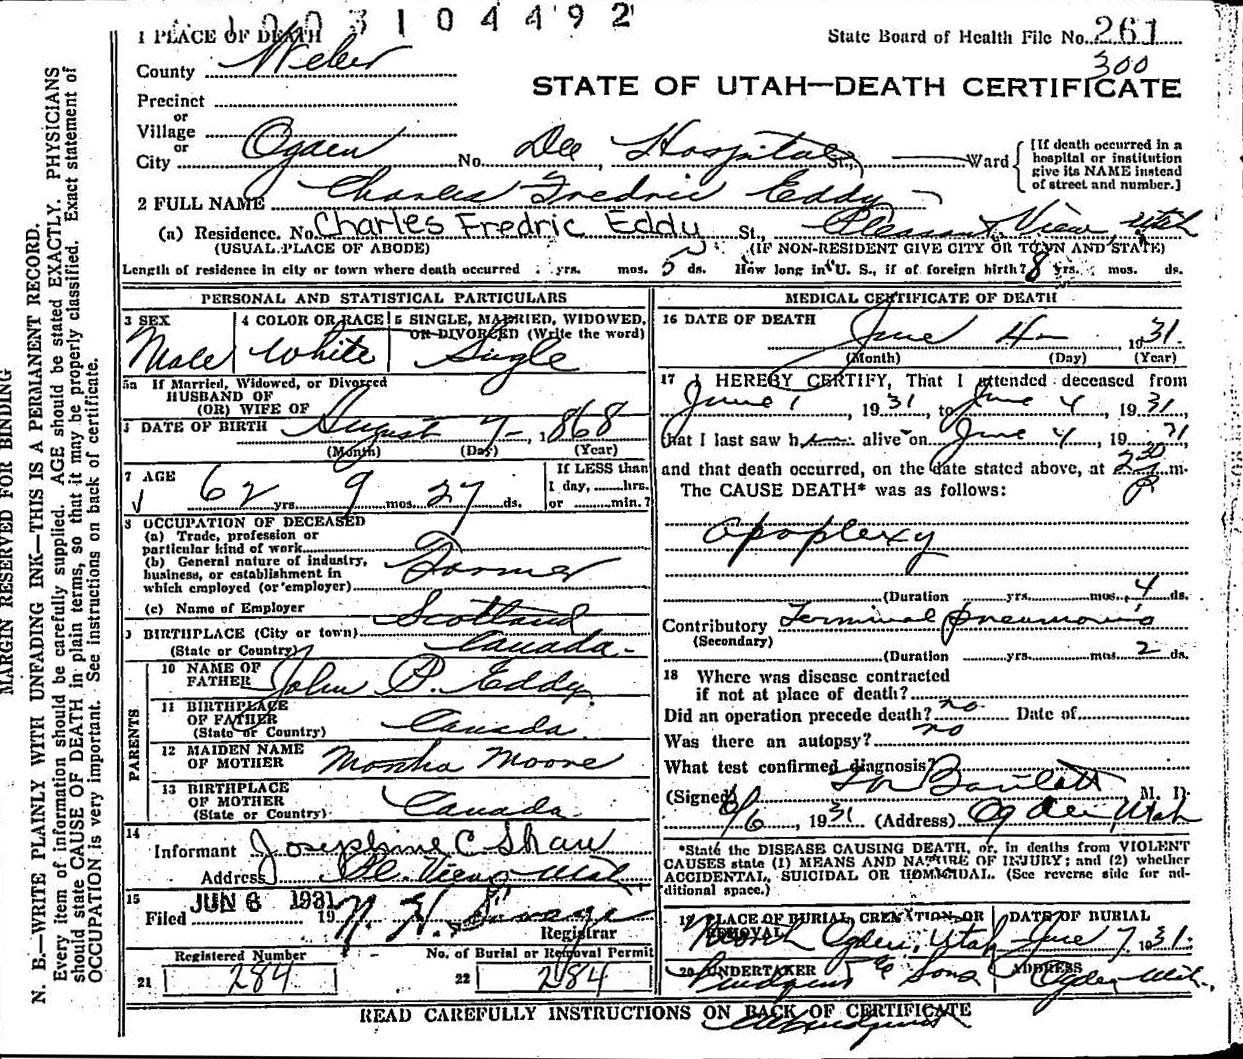 1003104492
1 PLACE OF DEATH
State Board of Health File No. 261
300
County Weber
STATE OF UTAH—DEATH CERTIFICATE
Precinct
or
Village
or
City Ogden No. Dee Hospital St., Ward
[If death occurred in a hospital or institution give its NAME instead of street and number.]
2 FULL NAME Charles Fredric Eddy
(a) Residence. No. Charles Fredric Eddy St., Pleasant View, Utah
(USUAL PLACE OF ABODE) (IF NON-RESIDENT GIVE CITY OR TOWN AND STATE)
Length of residence in city or town where death occurred yrs. mos. 5 ds. How long in U. S., if of foreign birth? 8 yrs. mos. ds.
PERSONAL AND STATISTICAL PARTICULARS
3 SEX Male
4 COLOR OR RACE White
5 SINGLE, MARRIED, WIDOWED, OR DIVORCED (Write the word) Single
5a If Married, Widowed, or Divorced
HUSBAND OF
(OR) WIFE OF
DATE OF BIRTH August 7- 1868
(Month) (Day) (Year)
7 AGE 62 yrs. 9 mos. 27 ds.
If LESS than 1 day, hrs. or min.?
8 OCCUPATION OF DECEASED
(a) Trade, profession or particular kind of work
(b) General nature of industry, business, or establishment in which employed (or employer)
Farmer
(c) Name of Employer
9 BIRTHPLACE (City or town) Scotland
(State or Country) Canada-
PARENTS
10 NAME OF FATHER John P. Eddy
11 BIRTHPLACE OF FATHER (State or Country) Canada
12 MAIDEN NAME OF MOTHER Marsha Moore
13 BIRTHPLACE OF MOTHER (State or Country) Canada
14 Informant Josephine C. Shaw
Address Pl. View, Utah
15 Filed JUN 6 1931 19 Registrar
Registered Number
21 284
No. of Burial or Removal Permit
22 284
MEDICAL CERTIFICATE OF DEATH
16 DATE OF DEATH June 4- 1931.
(Month) (Day) (Year)
17 I HEREBY CERTIFY, That I attended deceased from
June 1, 1931, to June 4, 1931,
that I last saw him alive on June 4, 1931,
and that death occurred, on the date stated above, at 2 30 P m.
The CAUSE DEATH* was as follows:
apoplexy
(Duration yrs. mos. 4 ds.
Contributory Terminal pneumonia
(Secondary)
(Duration yrs. mos. 2 ds.
18 Where was disease contracted
if not at place of death?
Did an operation precede death? no Date of
Was there an autopsy? no
What test confirmed diagnosis?
(Signed) Bartlett, M. D.
6/6, 1931 (Address) Ogden, Utah
*State the DISEASE CAUSING DEATH, or, in deaths from VIOLENT
CAUSES state (1) MEANS AND NATURE OF INJURY; and (2) whether
ACCIDENTAL, SUICIDAL OR HOMICIDAL. (See reverse side for additional space.)
19 PLACE OF BURIAL, CREMATION, OR REMOVAL North Ogden, Utah
DATE OF BURIAL June 7, 1931.
20 UNDERTAKER & Sons
ADDRESS Ogden Utah.
READ CAREFULLY INSTRUCTIONS ON BACK OF CERTIFICATE
MARGIN RESERVED FOR BINDING
N. B.—WRITE PLAINLY WITH UNFADING INK—THIS IS A PERMANENT RECORD.
Every item of information should be carefully supplied. AGE should be stated EXACTLY. PHYSICIANS
should state CAUSE OF DEATH in plain terms, so that it may be properly classified. Exact statement of
OCCUPATION is very important. See instructions on back of certificate.